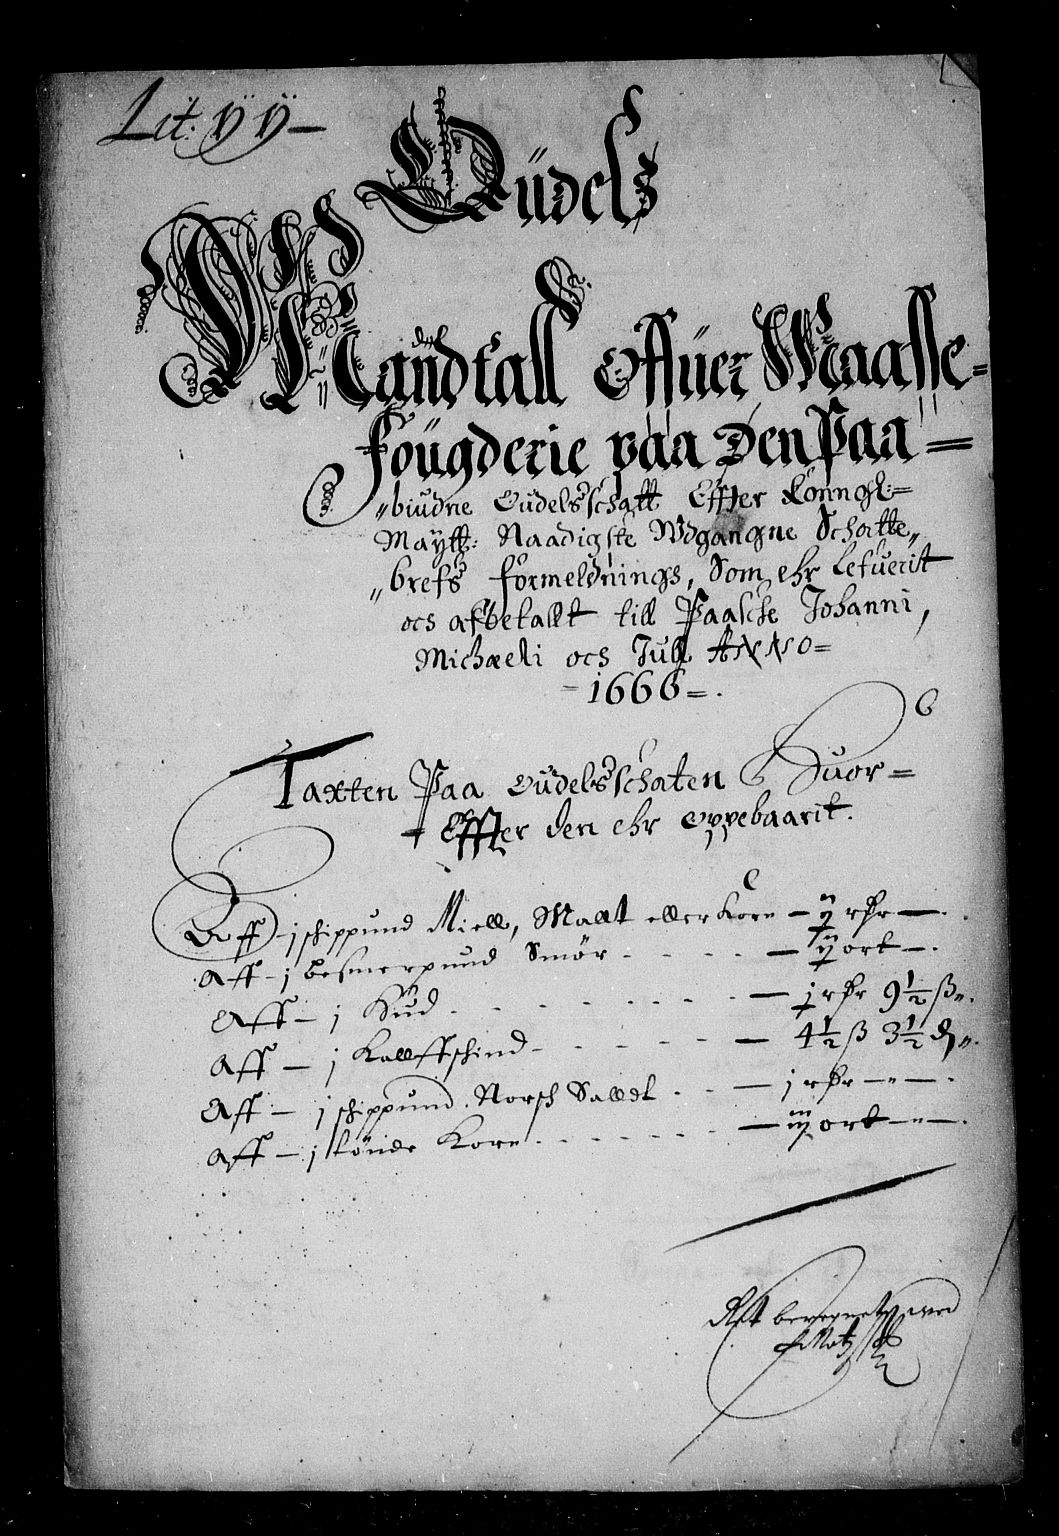 Lit: ÿÿ—
Oüdelß
Mandtall Offüer Maasse-
fougderie paa Den Paa=
„biudne Oudelsschatt Effter Konngl:=
Mäytt: Naadigste Udgangne Schatte„
„brefs formeldnings, Som ehr Lefuerit
och afbetallt till Paasche Johanni,
Michaeli och Jull Anno=
-1666=.
6
Taxten Paa Oudelsschaten Huor=
Effter den ehr oppebaarit.
Aff - j schippund Miell, Maltt eller Korn — ij rdr —.
Aff - j besmerpund Smör - - - - — ij ort —.
Aff — j Hüd - - - - - — j rdr 9½ ß„.
Aff — j Kallffschind - - - - - — 4½ ß 3½ d„.
Aff — j schippund Norsch Salldt - - — j rdr —„—.
Aff — j tönde Korn - - - - - — iij ort —„—.
Ret beregnet